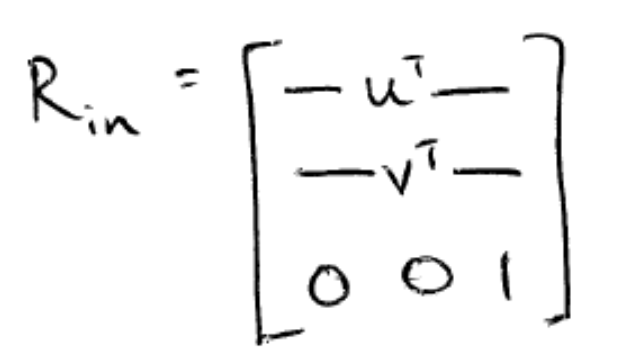 R_in = [ — u^T —
— v^T —
0 0 1 ]